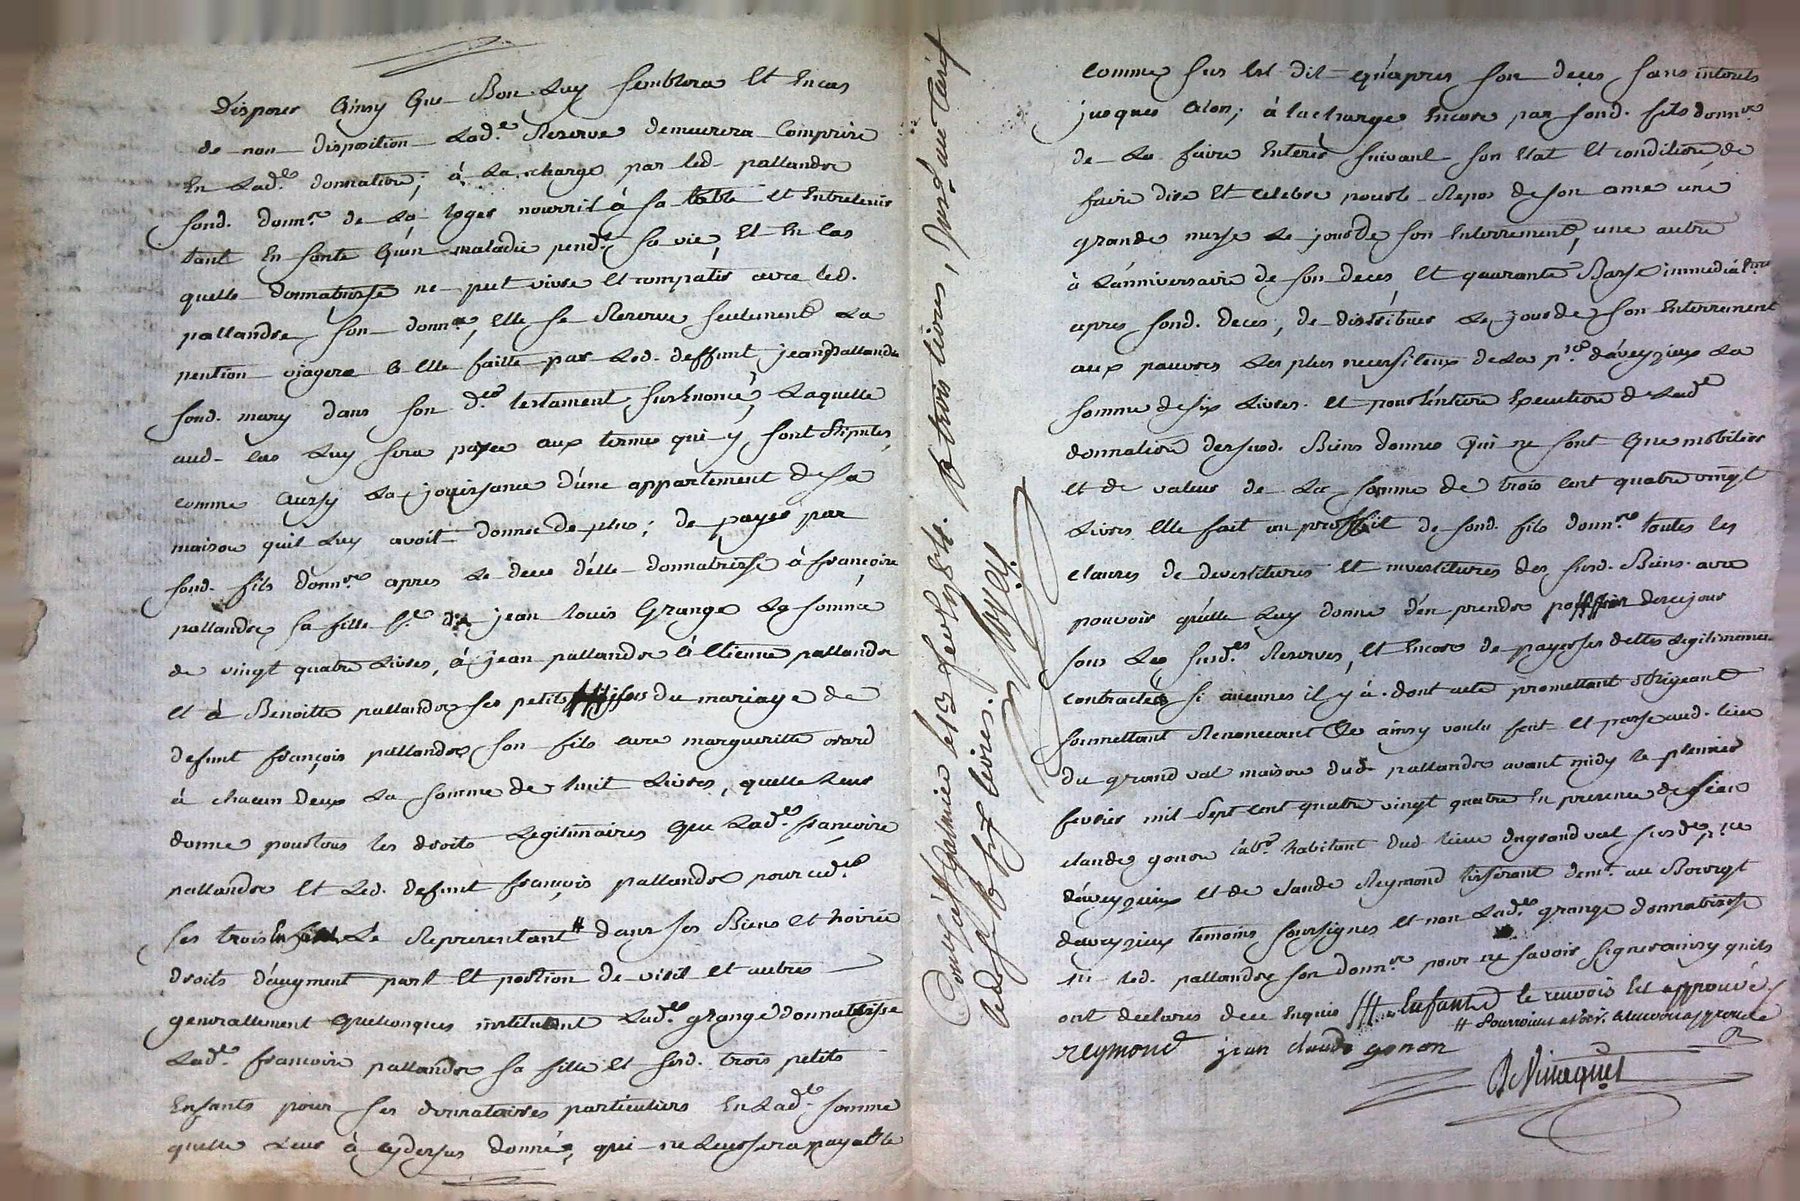 Disposer Ainsy Que Bon Luy semblera Et En cas
de non disposition Lad.e Reserve demeurera Comprise
En Lad.e donnation; à La charge par led. pallandre
sond. donn.re de La loger nourrir à sa table et Entretenir
tant En santé Qu'en maladie pend.t sa vie, Et En Cas
quelle donnatrisse ne put vivre Et compatir avec led.
pallandre son donn.re, Elle se Reserve seulement La
pention viagere à Elle faitte par Led. deffunt jean pallandre
sond. mary dans son d.er testament susEnoncé, Laquelle
aud. Cas Luy sera payée aux termes qui y sont stipulés,
comme Aussy La jouissance d'une appartement de sa
maison quil Luy avoit donné de plus; de payer par
sond. fils donn.re apres Le deces d'elle donnatrisse à françoise
pallandre sa fille f.e de jean Louis Grange La somme
de vingt quatre Livres, à jean pallandre à Etienne pallandre
Et à Benoitte pallandre ses petits du mariage de
defunt françois pallandre son fils avec margueritte orard
à chacun deux La somme de huit Livres, quelle Leur
donne pour tous les droits Legitimaires Que Lad.e françoise
pallandre Et Led. defunt françois pallandre pour
ses trois Le Representant # dans ses Biens et hoirie
droits d'augment part Et portion de viril et autres
generallement quelconques instituant Lad.e grange donnatrisse
Lad.e francoise pallandre sa fille et sesd. trois petits
Enfants pour ses donnataires particuliers En Lad.e somme
quelle Leur à cy dessus donné, qui ne Leur sera payable
Controllé à St Galmier le 13 fevr. 1784. Rt trois livres,
six livres.
Comme sus Est dit qu'apres son deces, sans interets
jusques alors; à la charge Encore par sond. fils donn.re
de La faire Enterrer suivant son Etat Et condition, de
faire dire Et celebré pour le Repos de son ame une
grande messe Le jour de son Enterrement, une autre
à L'anniversaire de son deces Et quarante Basse immediatt.
apres sond. deces; de distribuer Le jour de son Enterrement
aux pauvres Les plus necessiteux de La p.sse d'aveyzieux La
somme de six Livres. Et pour L'entiere Execution de Lad.e
donnation des susd. Biens donnés Qui ne sont Que mobilier
Et de valeur de La somme de trois Cent quatre vingt
Livres Elle fait au proffit de sond. fils donn.re toutes les
clauses de devestitures Et investitures des susd. Biens avec
pouvoir qu'elle Luy donne d'en prendre possession dece jour
sous Les susd.es Reserves, Et Encore de payer ses dettes Legitimement
contractées si aucunes il y à. dont acte promettant obligeant
soumettant Renoncant &e ainsy voulu fait Et passé aud. lieu
du grand val maison dud. pallandre avant midy le premier
fevrier mil sept cent quatre vingt quatre En presence de jean
claude gonon lab.r habitant dud. lieu du grand val susd.e p.sse
d'aveyzieux et de claude Reymond tisserant dem.t au Bourgt
d'aveyzieux temoins soussignés et non Lad.e grange donnatrisse
ni Led. pallandre son donn.re pour ne savoir signer ainsy quils
ont declarés de ce Enquis /// Enfants le renvois Est approuvé
reymond jean claude gonon